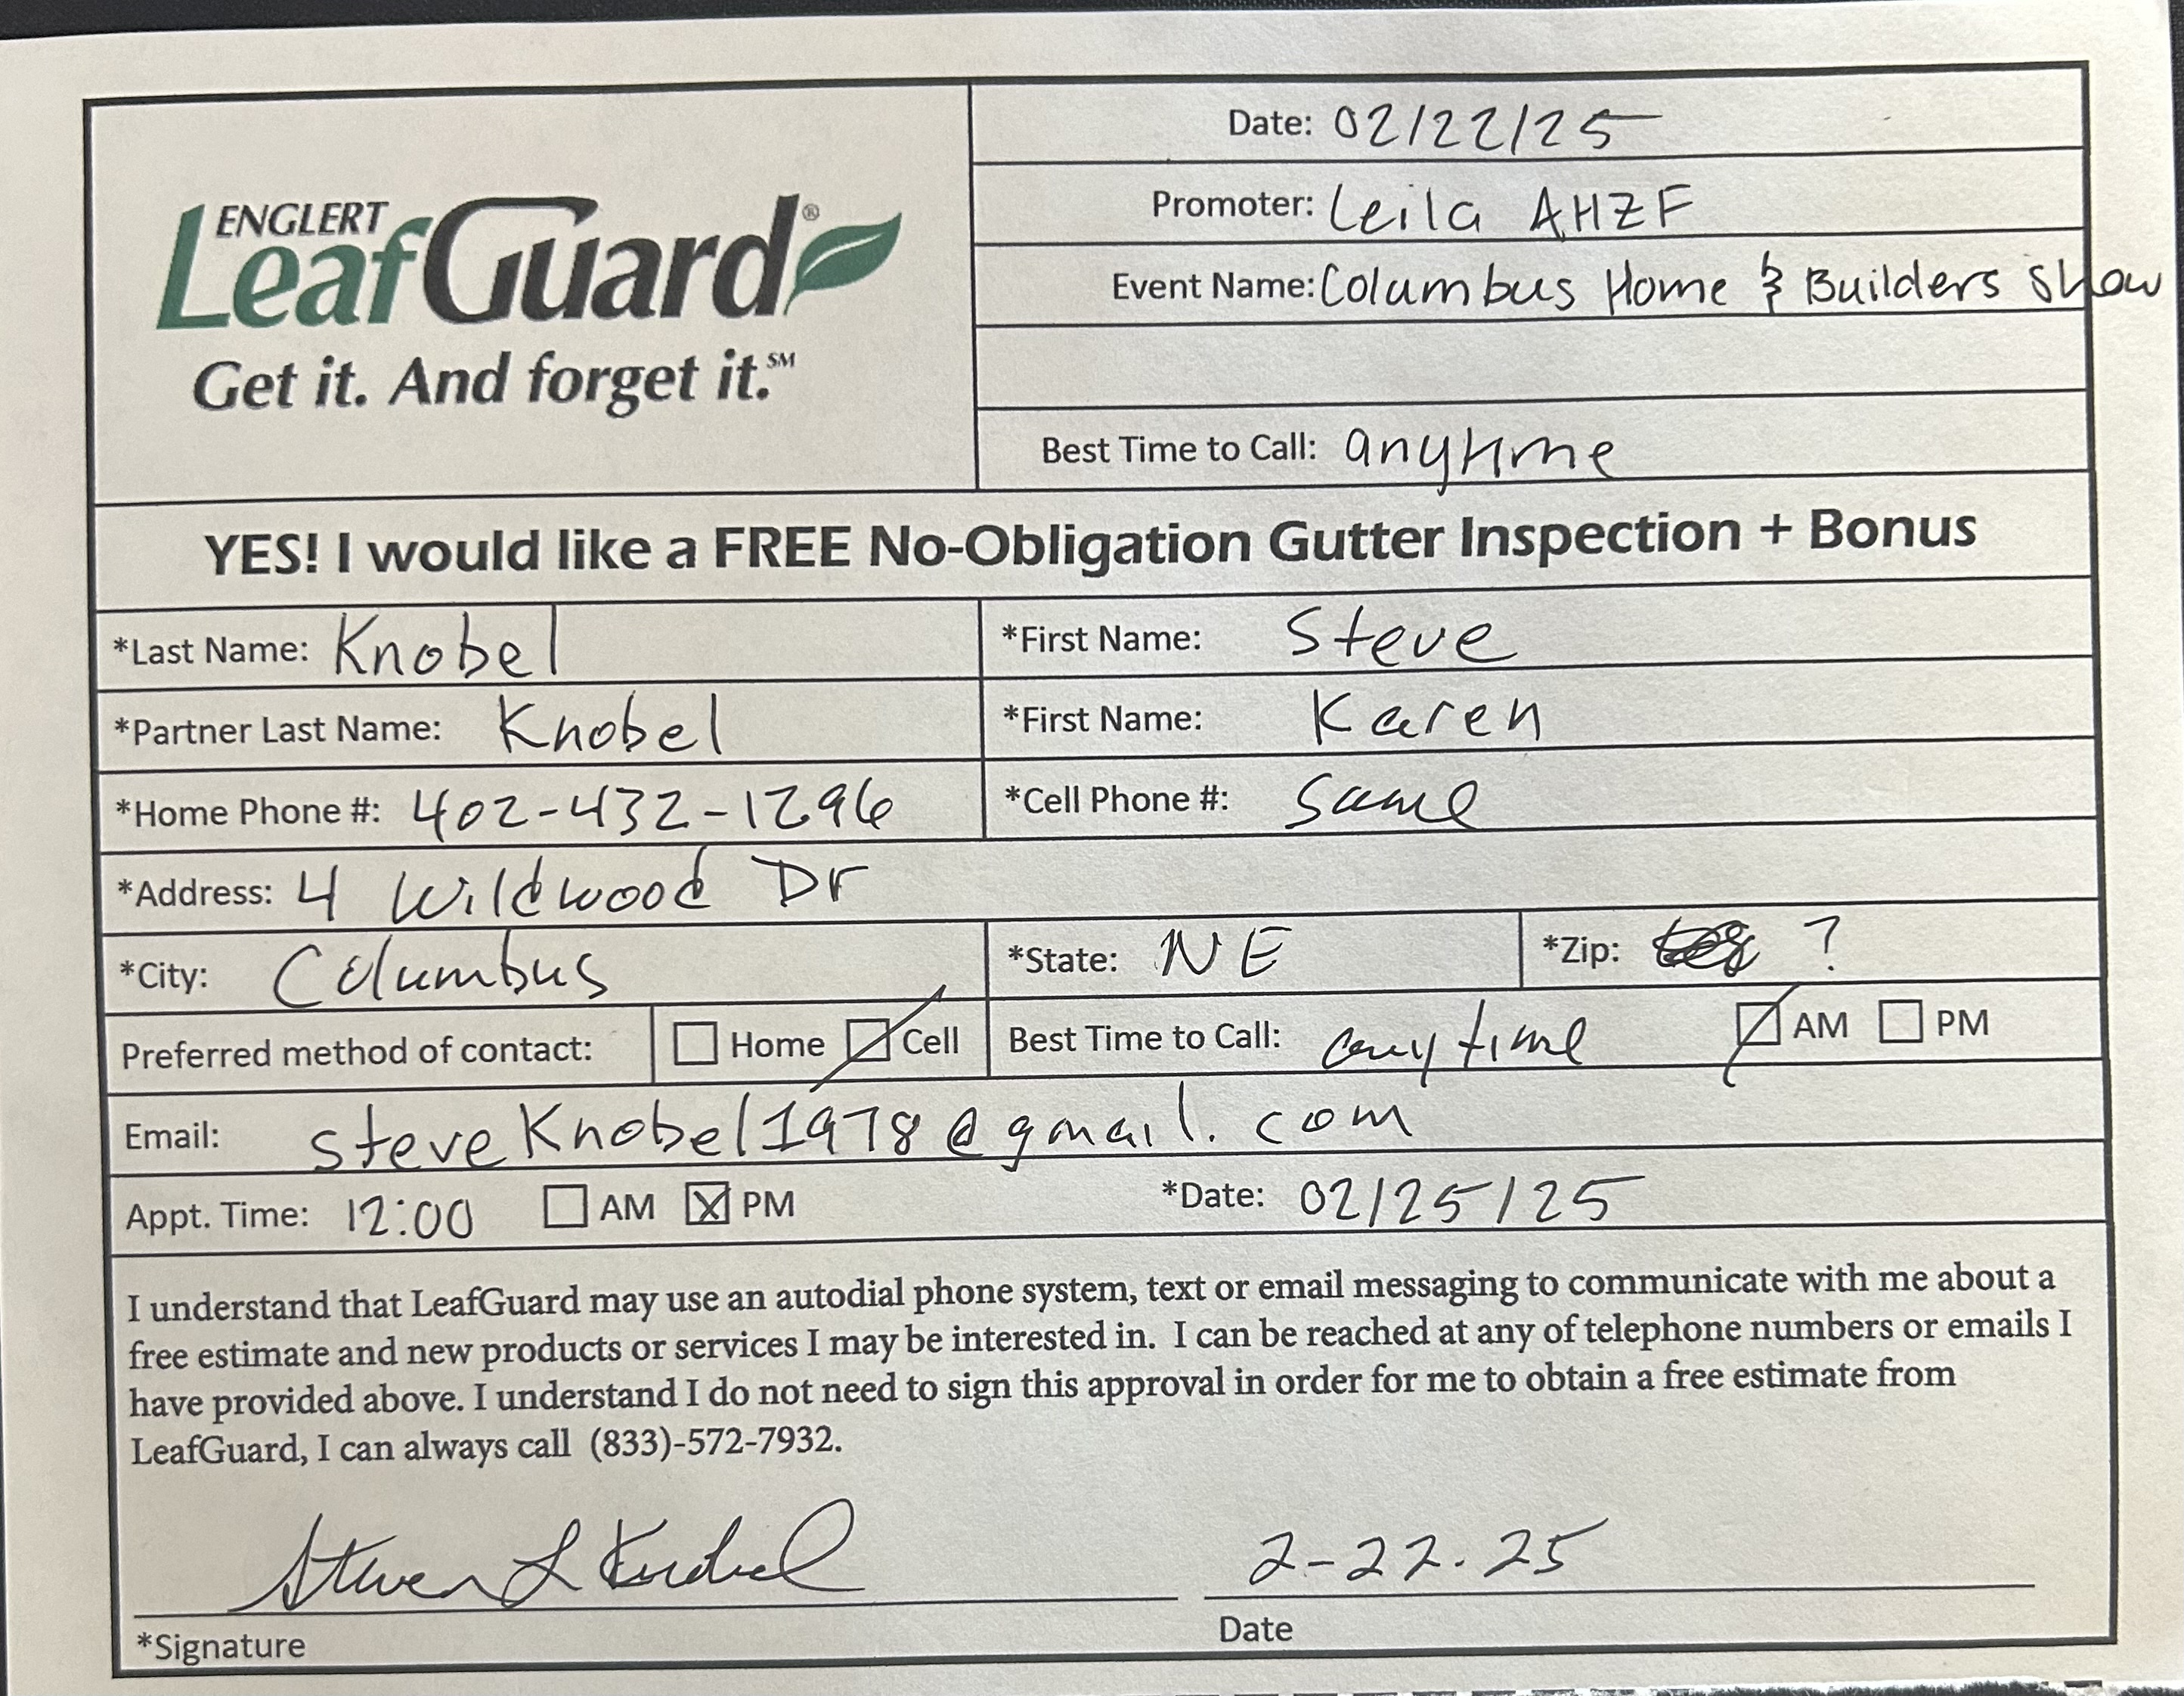 Date: 02/22/25
Promoter: Leila AHZF
ENGLERT
LeafGuard®
Get it. And forget it.℠
Event Name: Columbus Home & Builders Show
Best Time to Call: anytime
YES! I would like a FREE No-Obligation Gutter Inspection + Bonus
*Last Name: Knobel *First Name: Steve
*Partner Last Name: Knobel *First Name: Karen
*Home Phone #: 402-432-1296 *Cell Phone #: Same
*Address: 4 Wildwood Dr
*City: Columbus *State: NE *Zip: ?
Preferred method of contact: Home Cell Best Time to Call: anytime AM PM
Email: steveKnobel1978@gmail.com
Appt. Time: 12:00 AM PM *Date: 02/25/25
I understand that LeafGuard may use an autodial phone system, text or email messaging to communicate with me about a
free estimate and new products or services I may be interested in. I can be reached at any of telephone numbers or emails I
have provided above. I understand I do not need to sign this approval in order for me to obtain a free estimate from
LeafGuard, I can always call (833)-572-7932.
Steven L Knobel 2-22.25
*Signature Date